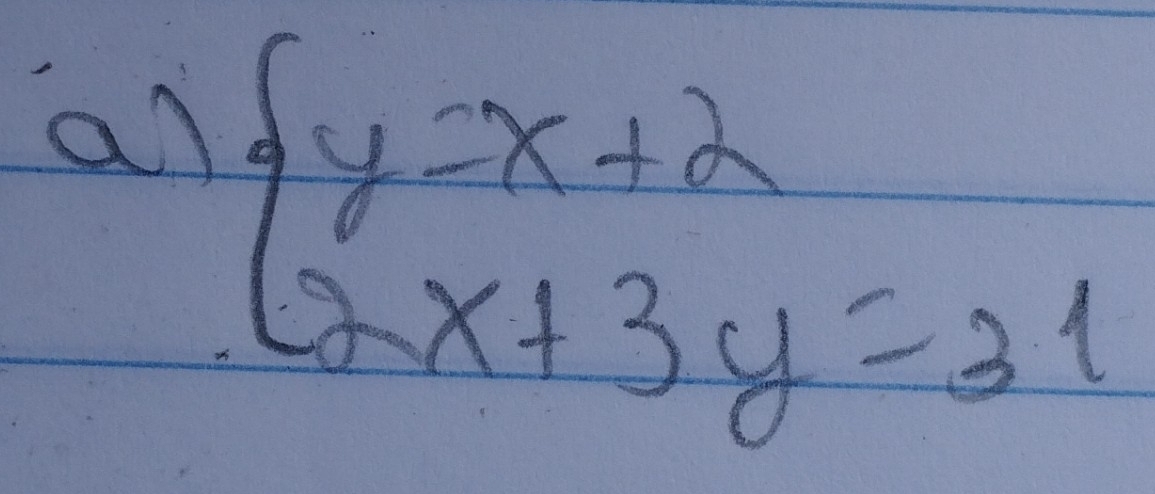 a) { y = x + 2
2x + 3y = 31